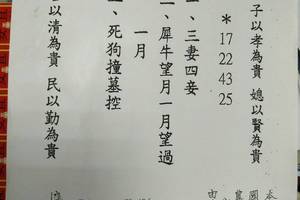 子以孝為貴 媳以賢為貴
*17 22 43 25
一、三妻四妾
一、犀牛望月一月望過
一月
、死狗撞墓控
以清為貴 民以勤為貴